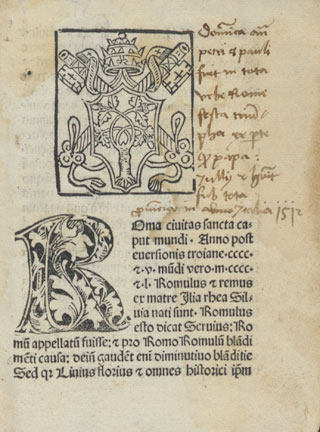 Domica añ
petri & pauli
fuit in tota
urbe Rome
festa
papa:
Iulij
sub tota
1512
Roma ciuitas sancta ca
put mundi · Anno post
euersionis troiane · cccc·
&·v· mūdi vero·m·cccc·
&·l· Romulus & remus
er matre Ilia rhea Sil⸗
uia nati sunt · Romulus
esto dicat Seruius: Ro
mū appellatū fuisse: & pro Romo Romulū blādi
mēti causa: deiñ gaudēt eni diminutiuo blāditie
Sed qr Liuius florius & omnes historici ipm